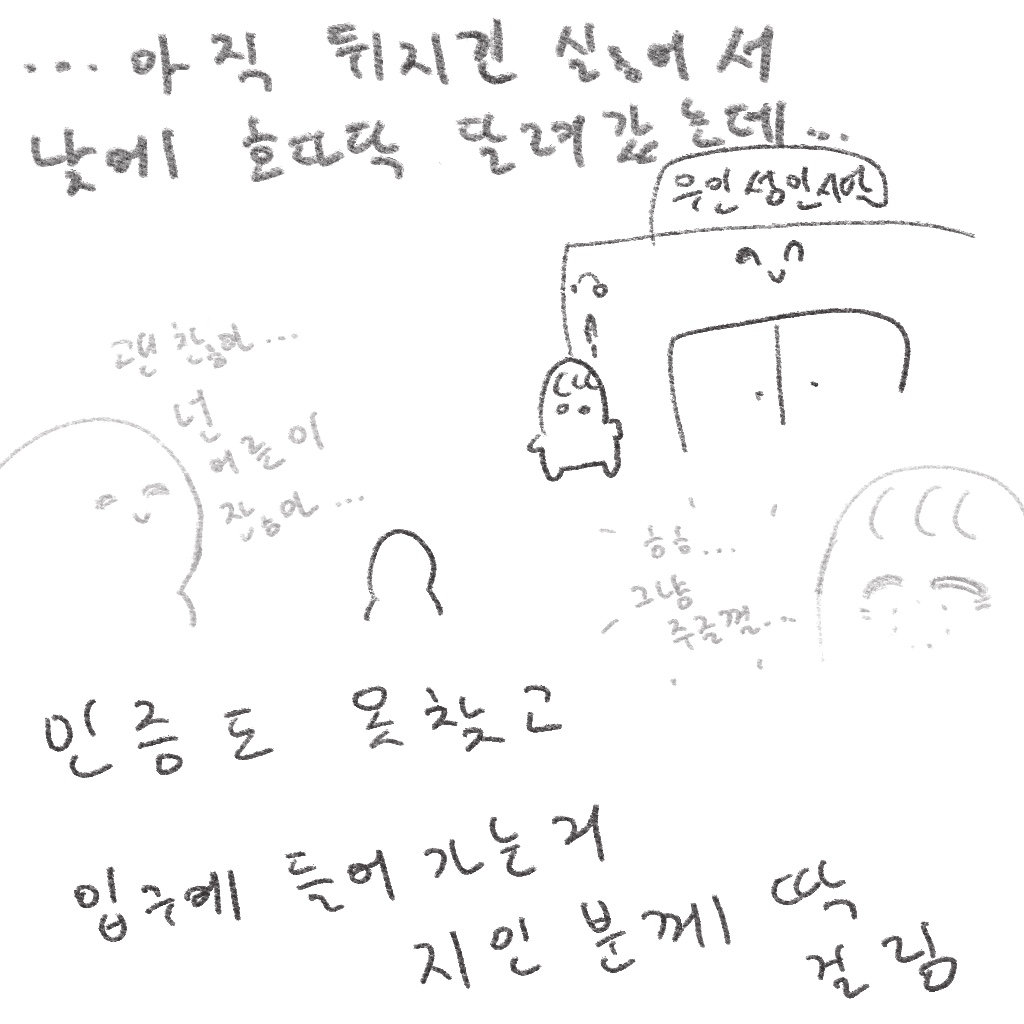 ...아직 뒤지긴 싫어서
낮에 호다닥 달려갔는데...
무인성인시안
괜찮아...
넌
어른이
잖아...
흐흐...
그냥
주글껄...
인증도 못찾고
입구에 들어가는거
지인분께 딱
걸림